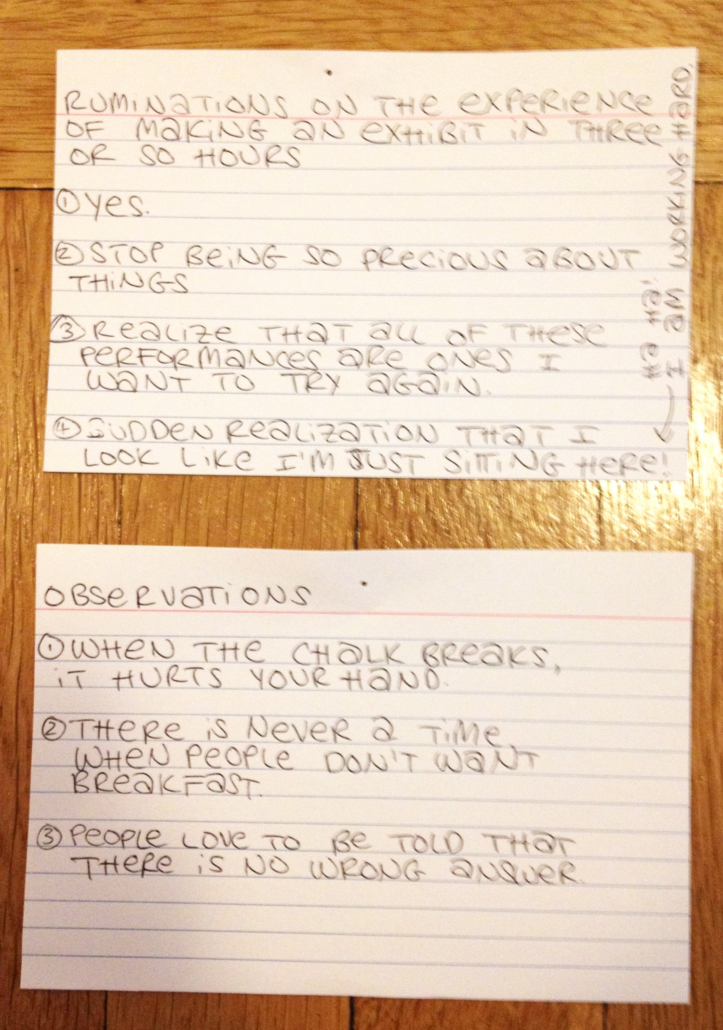 RUMINATIONS ON THE EXPERIENCE
OF MAKING AN EXHIBIT IN THREE
OR SO HOURS
① YES.
② STOP BEING SO PRECIOUS ABOUT
THINGS
③ REALIZE THAT ALL OF THESE
PERFORMANCES ARE ONES I
WANT TO TRY AGAIN.
④ SUDDEN REALIZATION THAT I
LOOK LIKE I'M JUST SITTING HERE!
HA HA!
I AM WORKING HARD.
OBSERVATIONS
① WHEN THE CHALK BREAKS,
IT HURTS YOUR HAND.
② THERE IS NEVER A TIME
WHEN PEOPLE DON'T WANT
BREAKFAST.
③ PEOPLE LOVE TO BE TOLD THAT
THERE IS NO WRONG ANSWER.